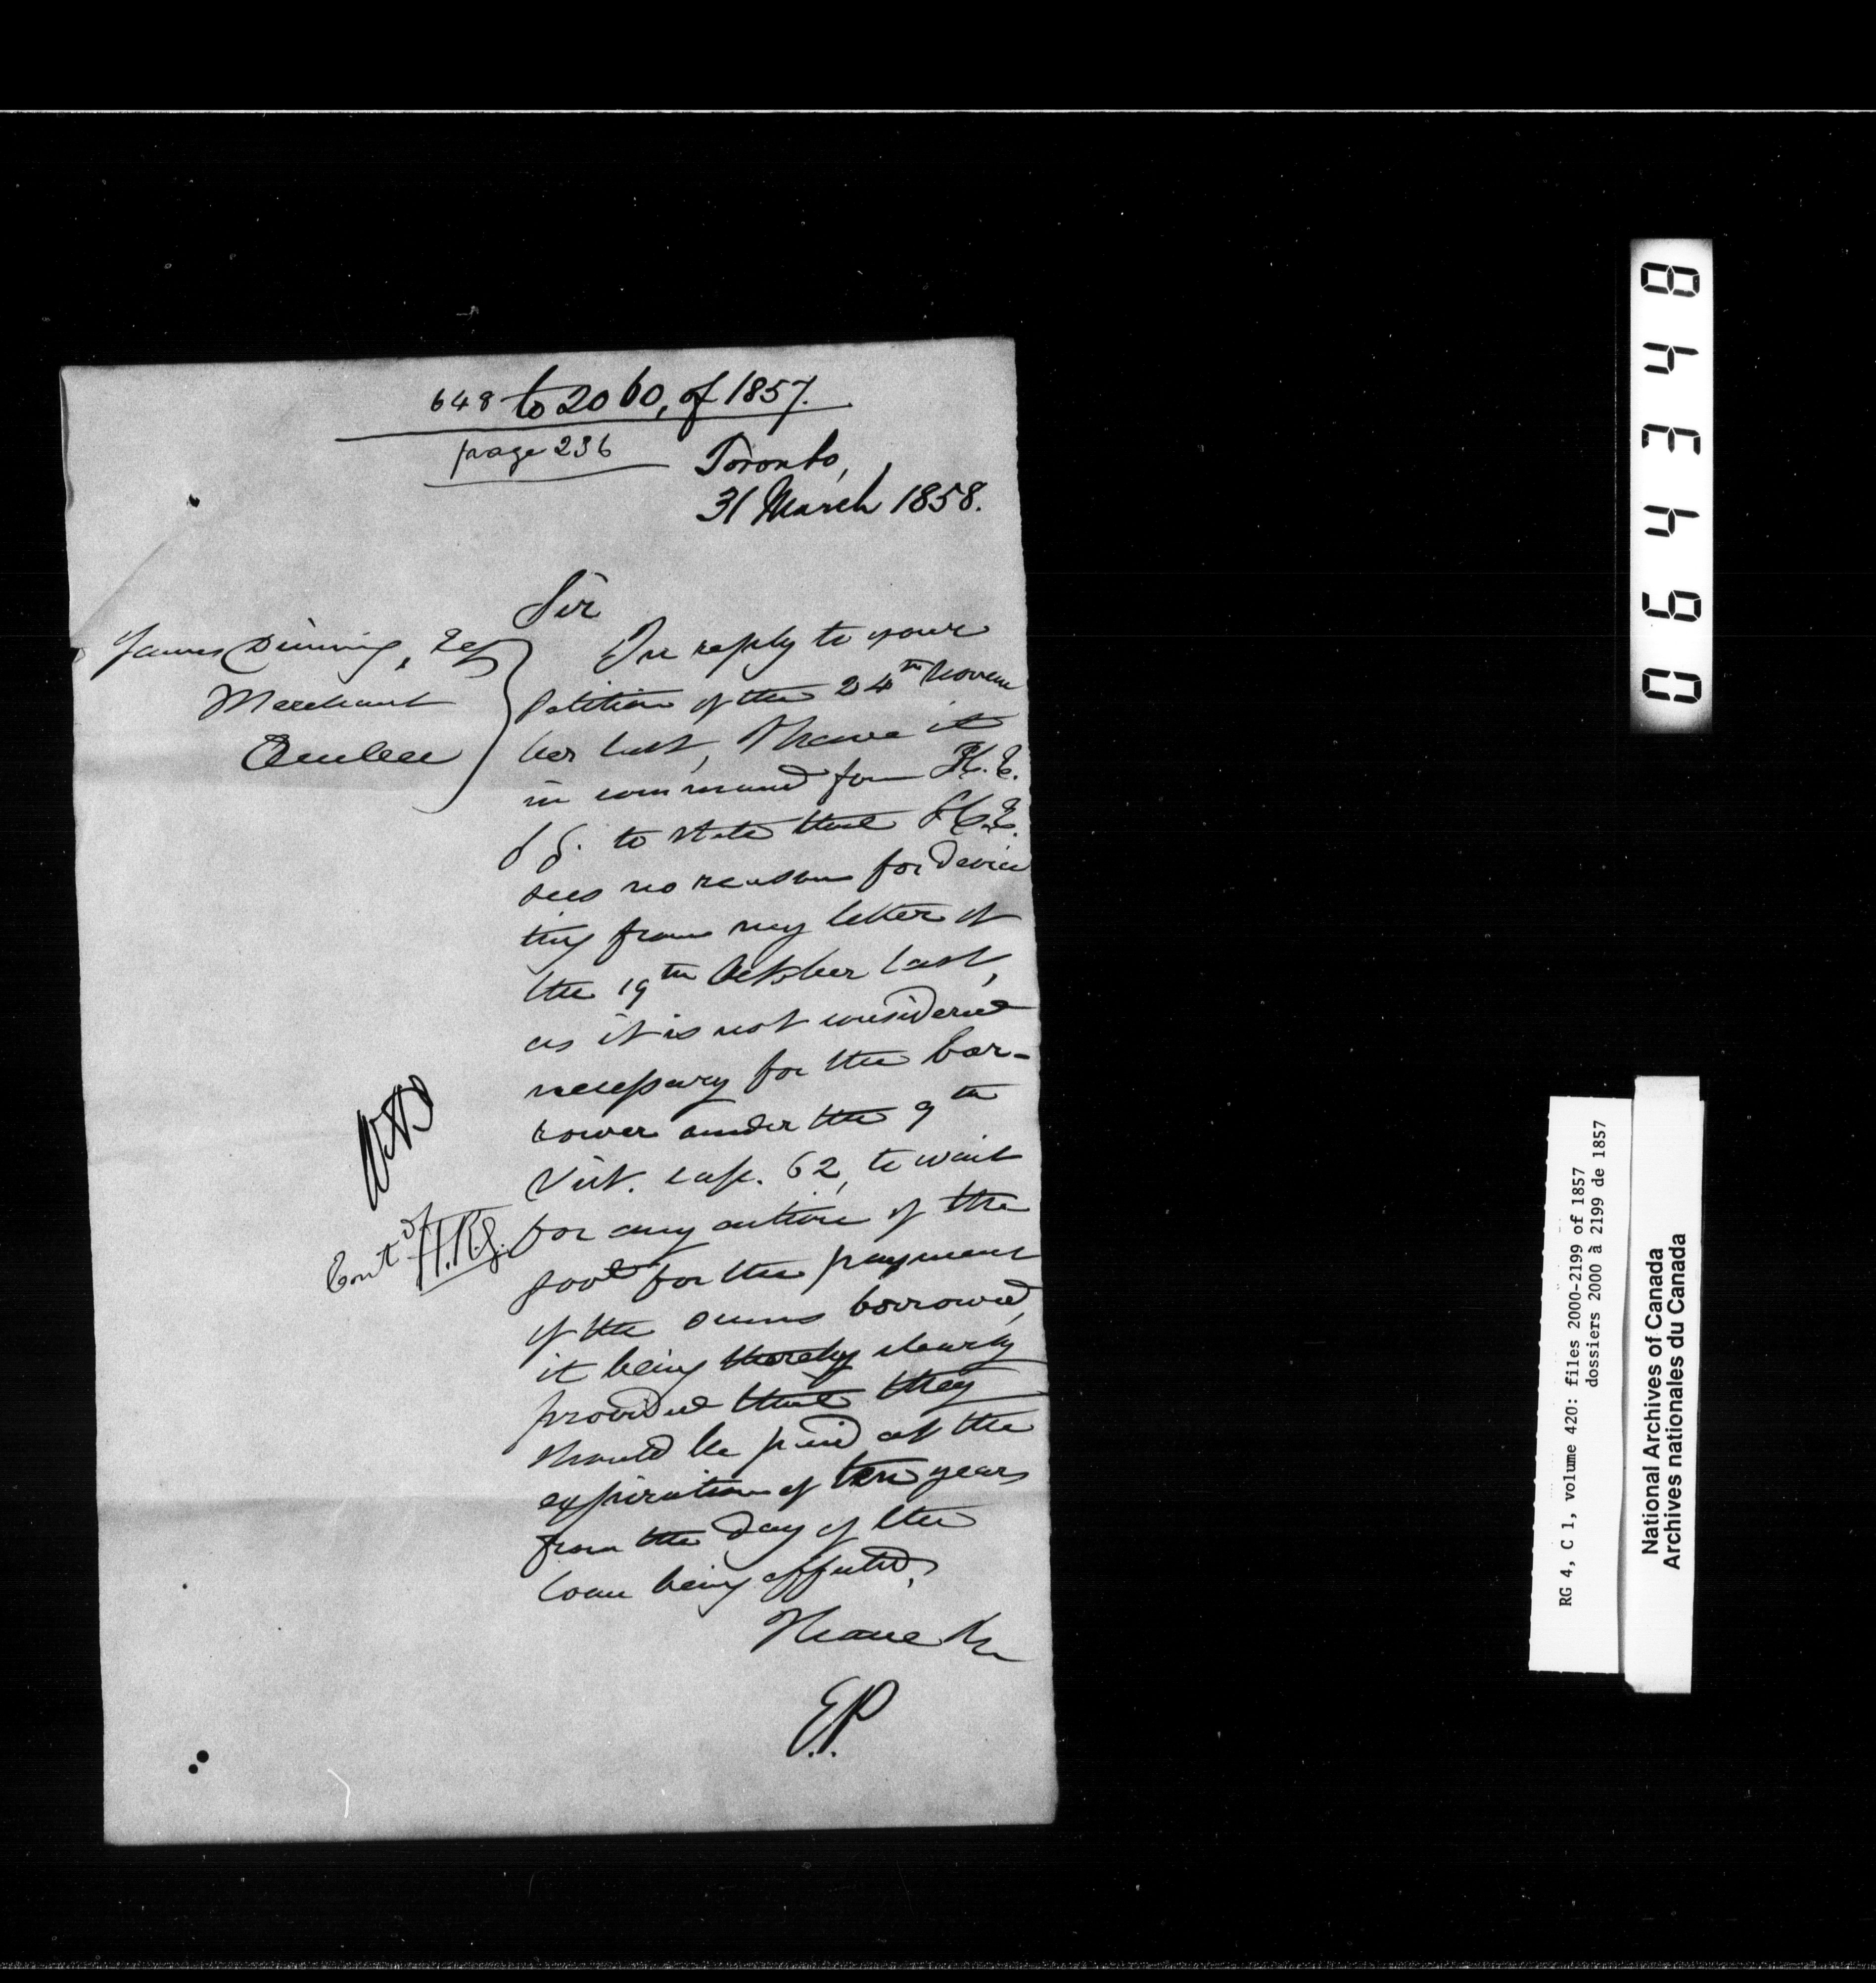 648 to 2060, of 1857.
page 236
Toronto,
31 March 1858.
Sir
James Dinning, Esq
Merchant
Quebec
In reply to your
petition of the 24th Novem
ber last, I have it
in command from H.E.
to state that H.E.
sees no reason for devia
ting from my letter of
the 19th October last,
as it is not considered
necessary for the bor-
rower under the 9th
Vict. cap. 62, to wait
for any action of the
Govt for the payment
of the sums borrowed,
it being thereby clearly
provided that they
should be paid at the
expiration of ten years
from the day of the
loan being effected.
I have &c
E.P.
Entd
H.R.J.
064348
RG 4, C 1, volume 420: files 2000-2199 of 1857
dossiers 2000 à 2199 de 1857
National Archives of Canada
Archives nationales du Canada